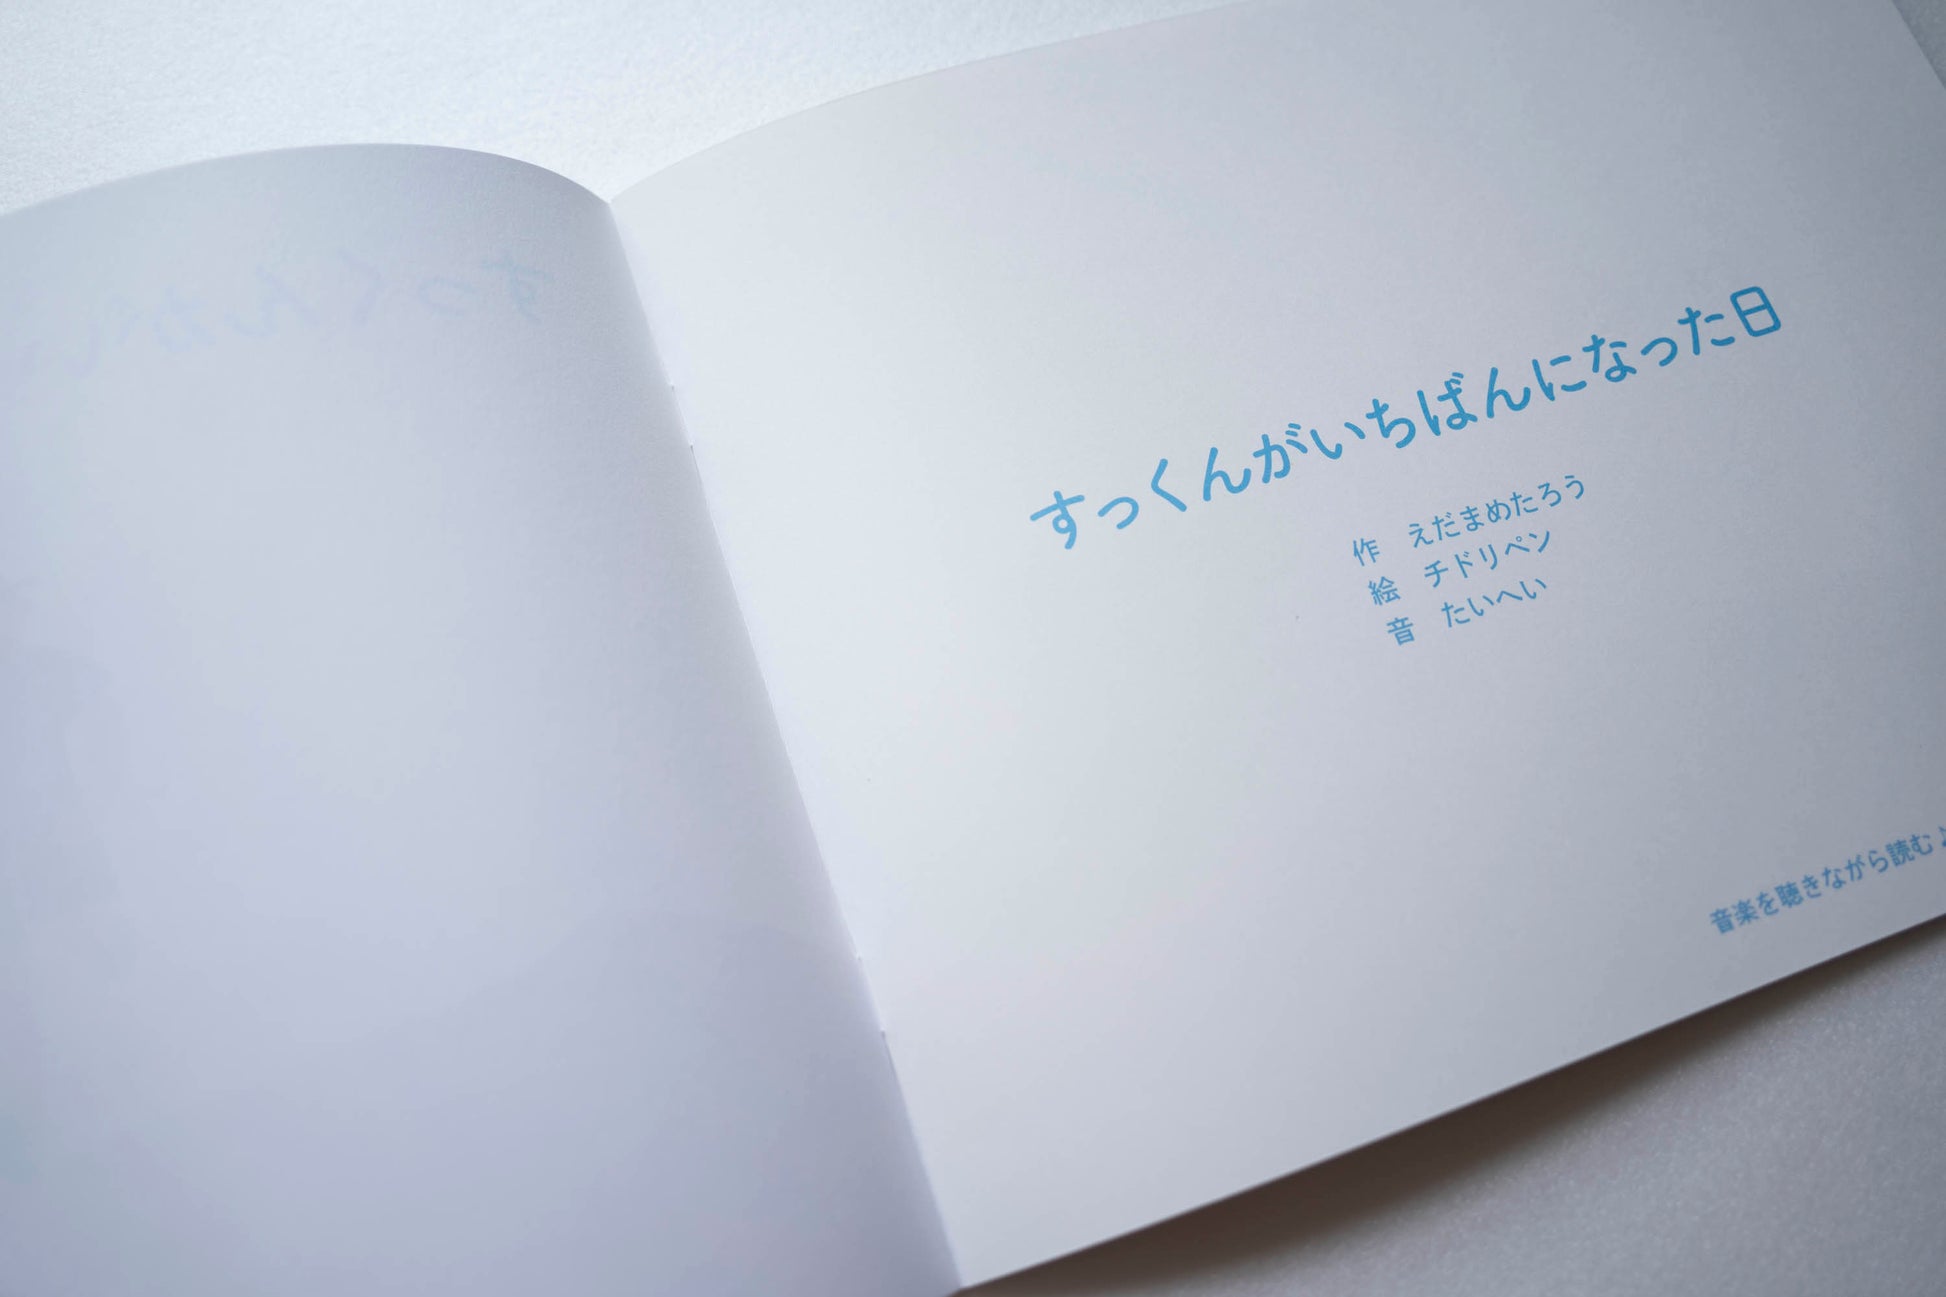 すっくんがいちばんになった日
作　えだまめたろう
絵　チドリペン
音　たいへい
音楽を聴きながら読む♪